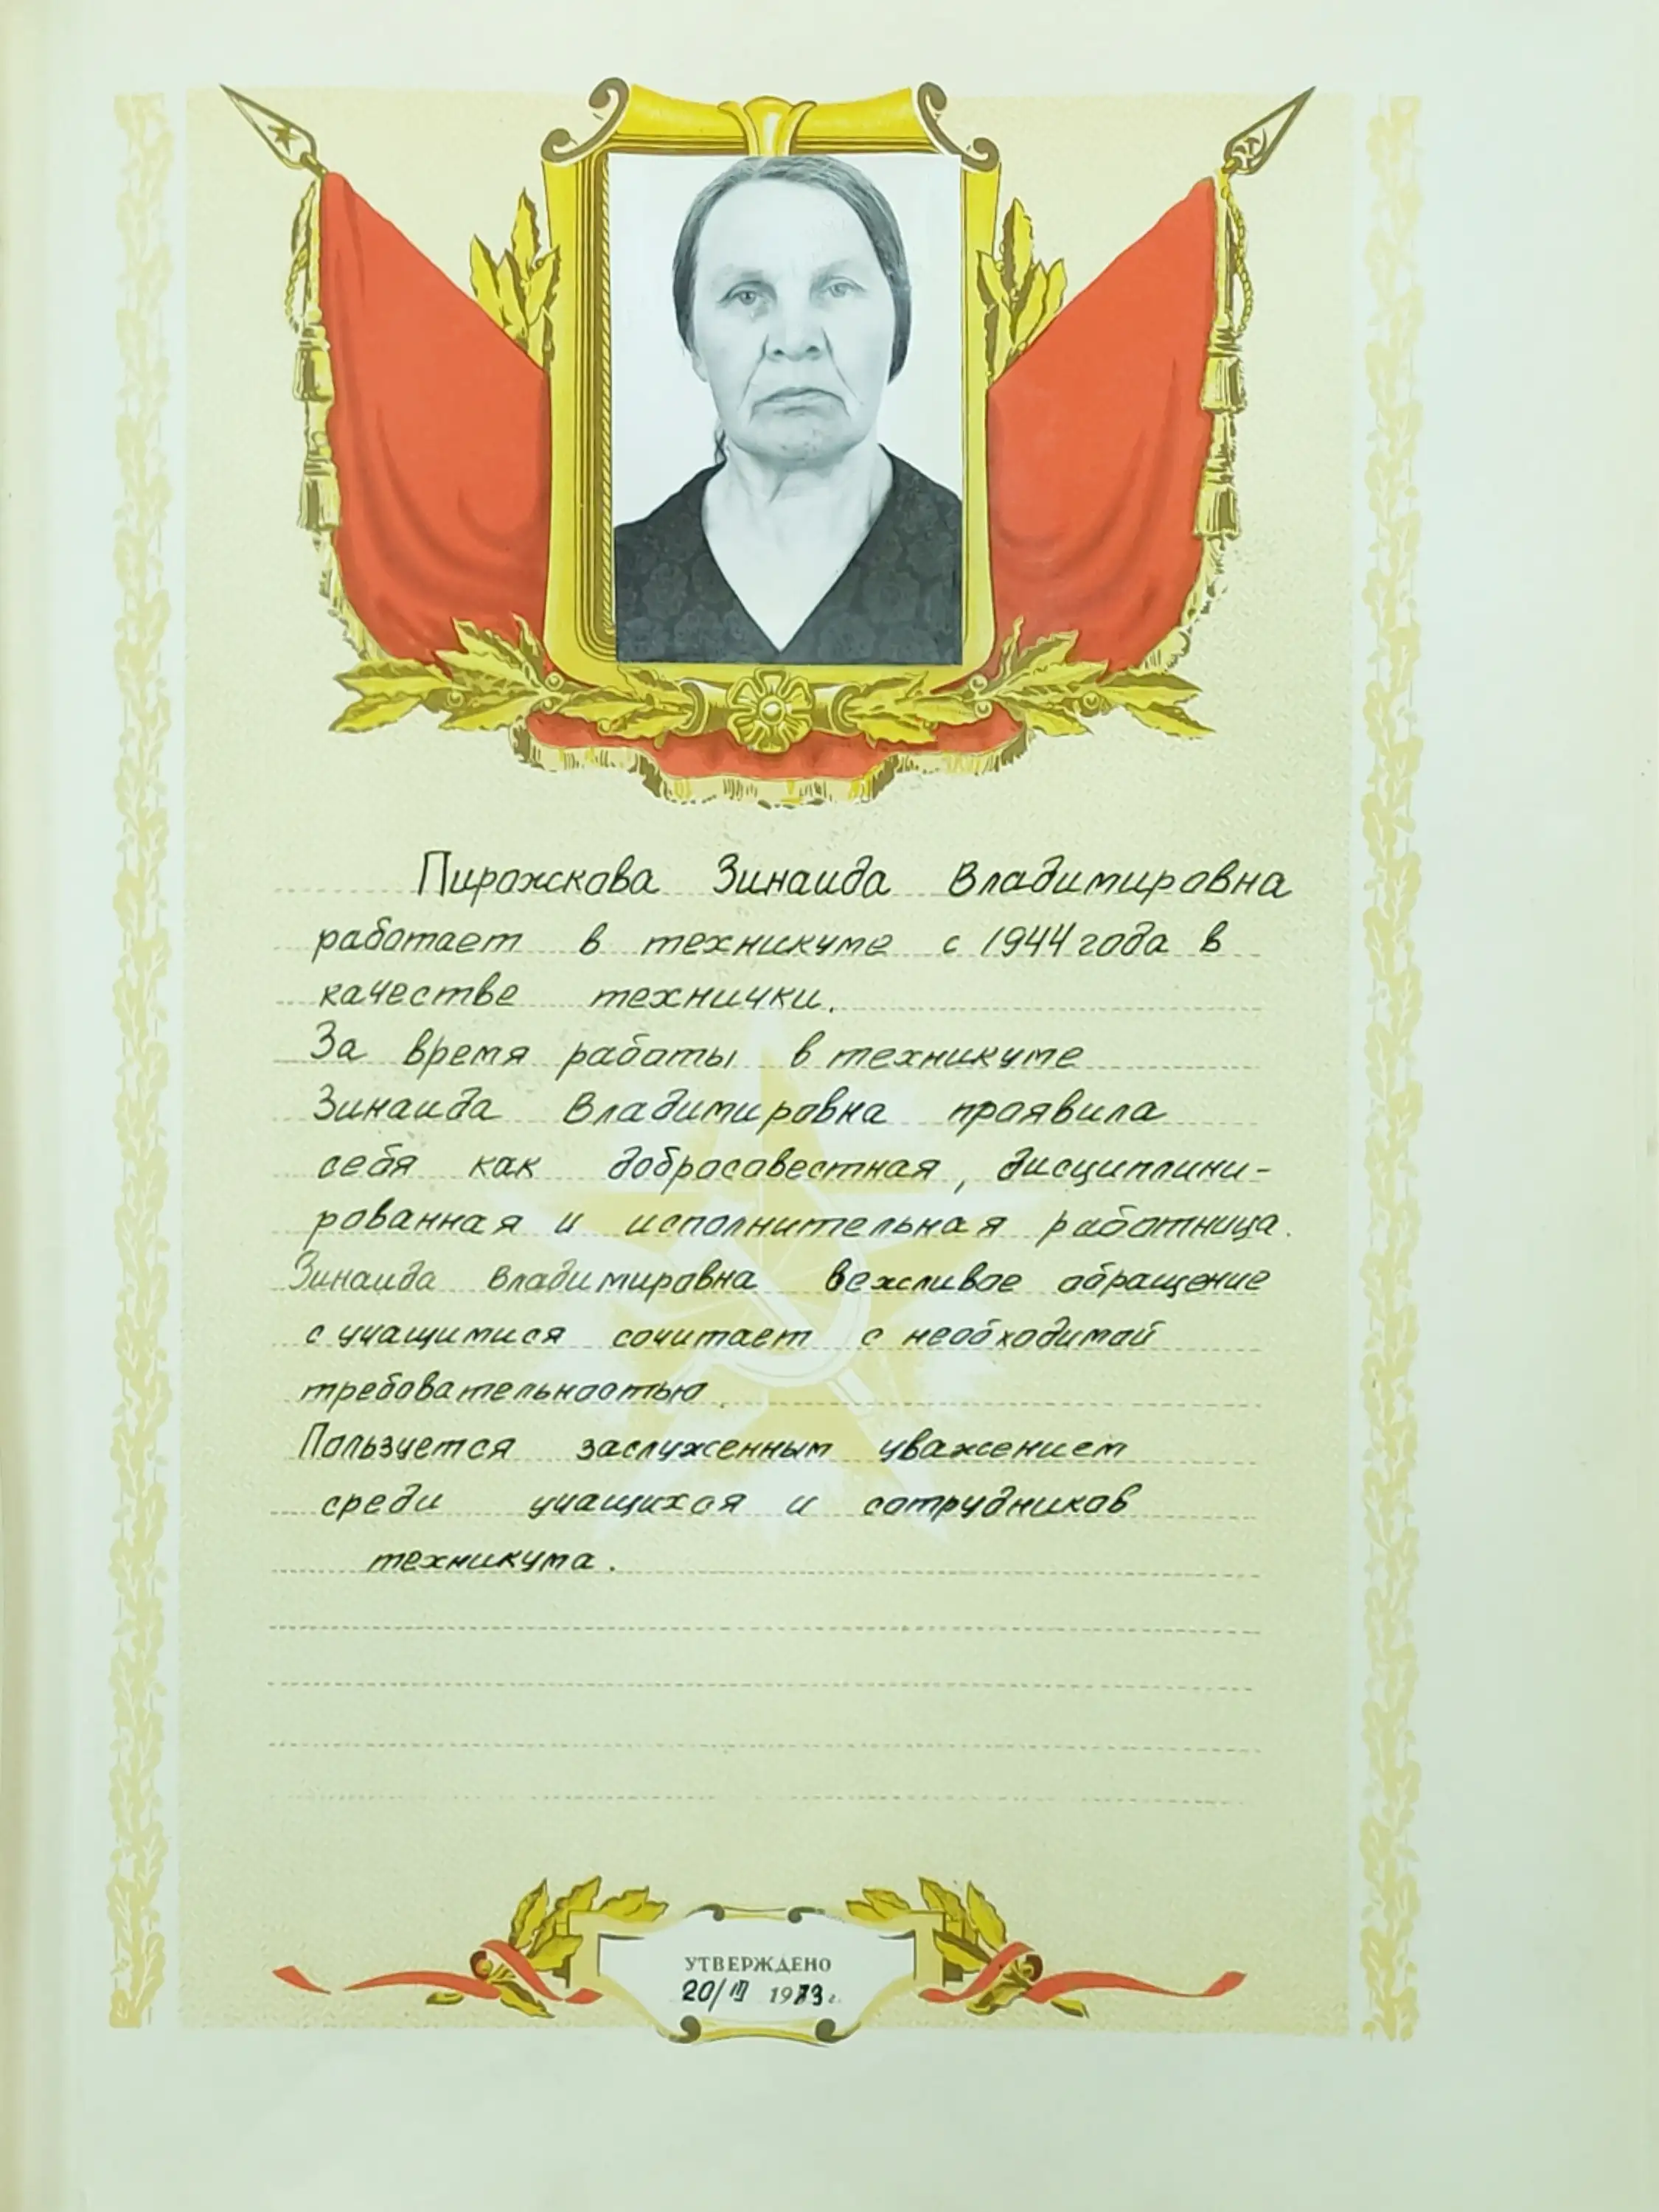 Пирожкова Зинаида Владимировна
работает в техникуме с 1944 года в
качестве технички.
За время работы в техникуме
Зинаида Владимировна проявила
себя как добросовестная, дисциплини-
рованная и исполнительная работница.
Зинаида Владимировна вежливое обращение
с учащимися сочитает с необходимой
требовательностью.
Пользуется заслуженным уважением
среди учащихся и сотрудников
техникума.
УТВЕРЖДЕНО
20/III 1973 г.